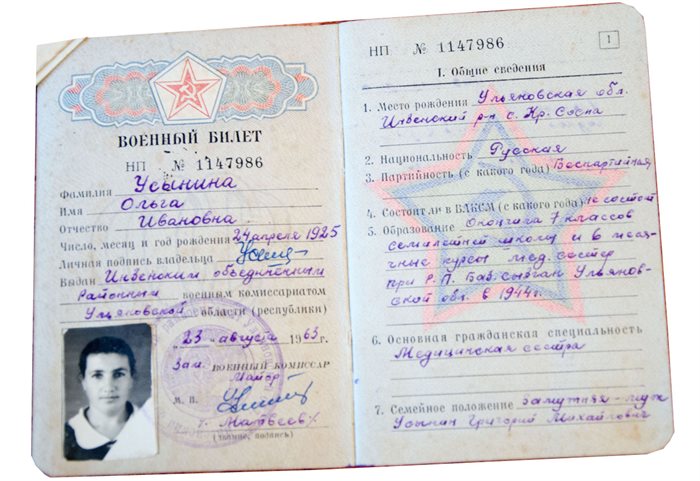 ВОЕННЫЙ БИЛЕТ
НП № 1147986
Фамилия Усынина
Имя Ольга
Отчество Ивановна
Число, месяц и год рождения 24 апреля 1925
Личная подпись владельца
Выдан Инзенским объединенным
Районным военным комиссариатом
Ульяновской области (республики)
23 августа 1963 г.
Зам. ВОЕННЫЙ КОМИССАР
Майор
М. П.
г. Матвеев
(звание, подпись)
НП № 1147986
1
I. Общие сведения
1. Место рождения Ульяновская обл.
Инзенский р-н с. Кр. Сосна
2. Национальность Русская
3. Партийность (с какого года) Беспартийная
4. Состоит ли в ВЛКСМ (с какого года) не состоит
5. Образование Окончила 7 классов
семилетней школы и 6 месяч-
ные курсы мед. сестер
при Р.П. Ульянов-
ской обл. в 1944 г.
6. Основная гражданская специальность
Медицинская сестра
7. Семейное положение Замужняя - муж
Усынин Григорий Михайлович